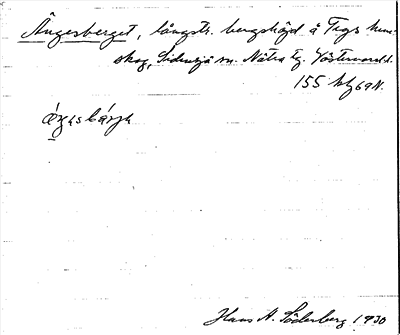 Ängesberget, långstr. bergshöjd å Tegs hem-
skog, Sidensjö sn. Nätra tg. Västernorrl.
155
Hans A. Söderberg 1930